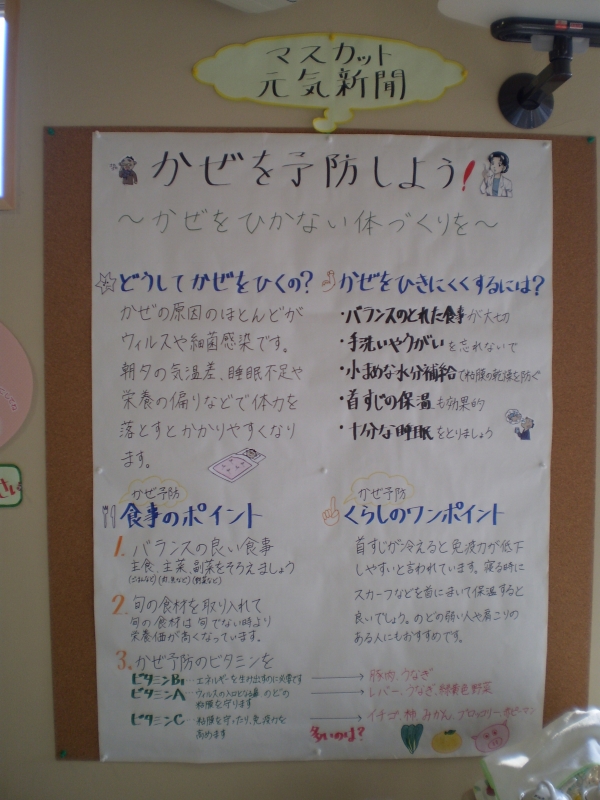 マスカット
元気新聞
かぜを予防しよう!
～かぜをひかない体づくりを～
どうしてかぜをひくの?
かぜの原因のほとんどが
ウィルスや細菌感染です。
朝夕の気温差、睡眠不足や
栄養の偏りなどで体力を
落とすとかかりやすくなり
ます。
かぜをひきにくくするには?
・バランスのとれた食事が大切
・手洗いやうがいを忘れないで
・小まめな水分補給で粘膜の乾燥を防ぐ
・首すじの保温も効果的
・十分な睡眠をとりましょう
かぜ予防
食事のポイント
1. バランスの良い食事
主食、主菜、副菜をそろえましょう
(ごはんなど)(肉、魚など)(野菜など)
2. 旬の食材を取り入れて
旬の食材は旬でない時より
栄養価が高くなっています。
3. かぜ予防のビタミンを
ビタミンB₁…エネルギーを生み出すのに必要です → 豚肉、うなぎ
ビタミンA…ウィルスの入口となる鼻のどの → レバー、うなぎ、緑黄色野菜
粘膜を守ります
ビタミンC…粘膜を守ったり、免疫力を → イチゴ、柿、みかん、ブロッコリー、赤ピーマン
高めます
多いのは?
かぜ予防
くらしのワンポイント
首すじが冷えると免疫力が低下
しやすいと言われています。寝る時に
スカーフなどを首にまいて保温すると
良いでしょう。のどの弱い人や肩こりの
ある人にもおすすめです。
さい